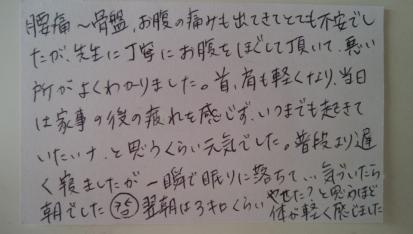 腰痛〜骨盤、お腹の痛みも出てきてとても不安でし
たが、先生に丁寧にお腹をほぐして頂いて、悪い
所がよくわかりました。首、肩も軽くなり、当日
は家事の後の疲れを感じず、いつまでも起きて
いたいナ、と思うくらい元気でした。普段より遅
く寝ましたが一瞬で眠りに落ちて…気づいたら
朝でした 翌朝は3キロくらいやせた?と思うほど
体が軽く感じました